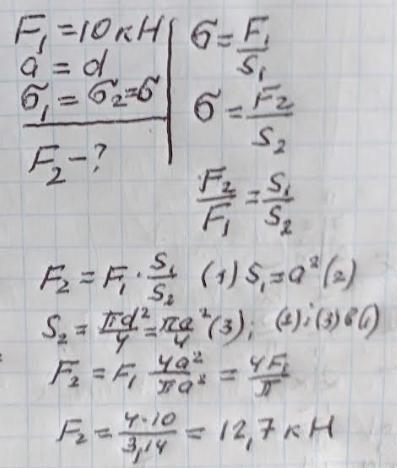 F₁ = 10 кН
a = d
σ₁ = σ₂ = σ
F₂ - ?
σ = F₁/S₁
σ = F₂/S₂
F₂/F₁ = S₁/S₂
F₂ = F₁ · S₁/S₂ (1) S₁ = a² (2)
S₂ = πd²/4 = πa²/4 (3); (2) i (3) в (1)
F₂ = F₁ 4a²/πa² = 4F₁/π
F₂ = 4·10/3,14 = 12,7 кН